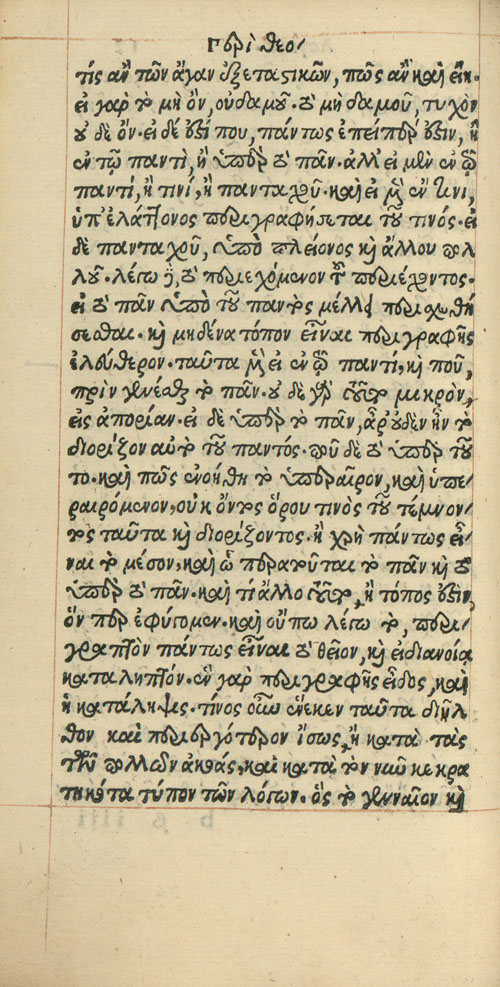 Περὶ θεο/
τίς ἂν τῶν ἄγαν ἐξεταστικῶν, πῶς ἂν καὶ εἴη.
εἰ γὰρ τὸ μὴ ὂν, οὐδαμοῦ. τὸ μὴ δαμοῦ, τυχὸν
οὐ δὲ ὄν. εἰ δέ ἐστί που, πάντως ἐπείπερ ἐστὶν, ἢ
ἐν τῷ παντὶ, ἢ ὑπὲρ τὸ πᾶν. ἀλλ' εἰ μὲν ἐν τῷ
παντί, ἤ τινί, ἢ πανταχοῦ. καὶ εἰ μὲν ἐν τινι,
ὑπ' ἐλάττονος περιγραφήσεται τοῦ τινός. εἰ
δὲ πανταχοῦ, ὑπὸ πλείονος καὶ ἄλλου πολ
λοῦ. λέγω δὲ, τὸ περιεχόμενον τοῦ περιέχοντος.
εἰ τὸ πᾶν ὑπὸ τοῦ παντὸς μέλλει περισχεθή
σεσθαι. καὶ μηδένα τόπον εἶναι περιγραφῆς
ἐλεύθερον. ταῦτα μὲν εἰ ἐν τῷ παντί, καὶ ποῦ,
πρὶν γενέσθαι τὸ πᾶν. οὐ δὲ γὰρ τοῦτο μικρὸν,
εἰς ἀπορίαν. εἰ δὲ ὑπὲρ τὸ πᾶν, ἆρ' οὐδὲν ἦν τὸ
διορίζον αὐτὸ τοῦ παντός. ποῦ δὲ τὸ ὑπὲρ τοῦ
το. καὶ πῶς ἐνοήθη τὸ ὑπεραῖρον, καὶ ὑπε-
ραιρόμενον, οὐκ ὄντος ὅρου τινὸς τοῦ τέμνον/
τος ταῦτα καὶ διορίζοντος. ἢ χρὴ πάντως εἶ/
ναι τὸ μέσον, καὶ ᾧ περατοῦται τὸ πᾶν καὶ τὸ
ὑπὲρ τὸ πᾶν. καὶ τί ἄλλο τοῦτο, ἢ τόπος ἐστὶν,
ὅν περ ἐφύγομεν. καὶ οὔπω λέγω τὸ, περι/
γραπτὸν πάντως εἶναι τὸ θεῖον, καὶ εἰ διανοίᾳ
καταληπτόν. ἓν γὰρ περιγραφῆς εἶδος, καὶ
ἡ κατάληψις. τίνος οὖν ἕνεκεν ταῦτα διῆλ
θον καὶ περιεργότερον ἴσως, ἢ κατὰ τὰς
τῶν πολλῶν ἀκοάς, καὶ κατὰ τὸν νῦν κεκρα
τηκότα τύπον τῶν λόγων. ὃς τὸ γενναῖον καὶ